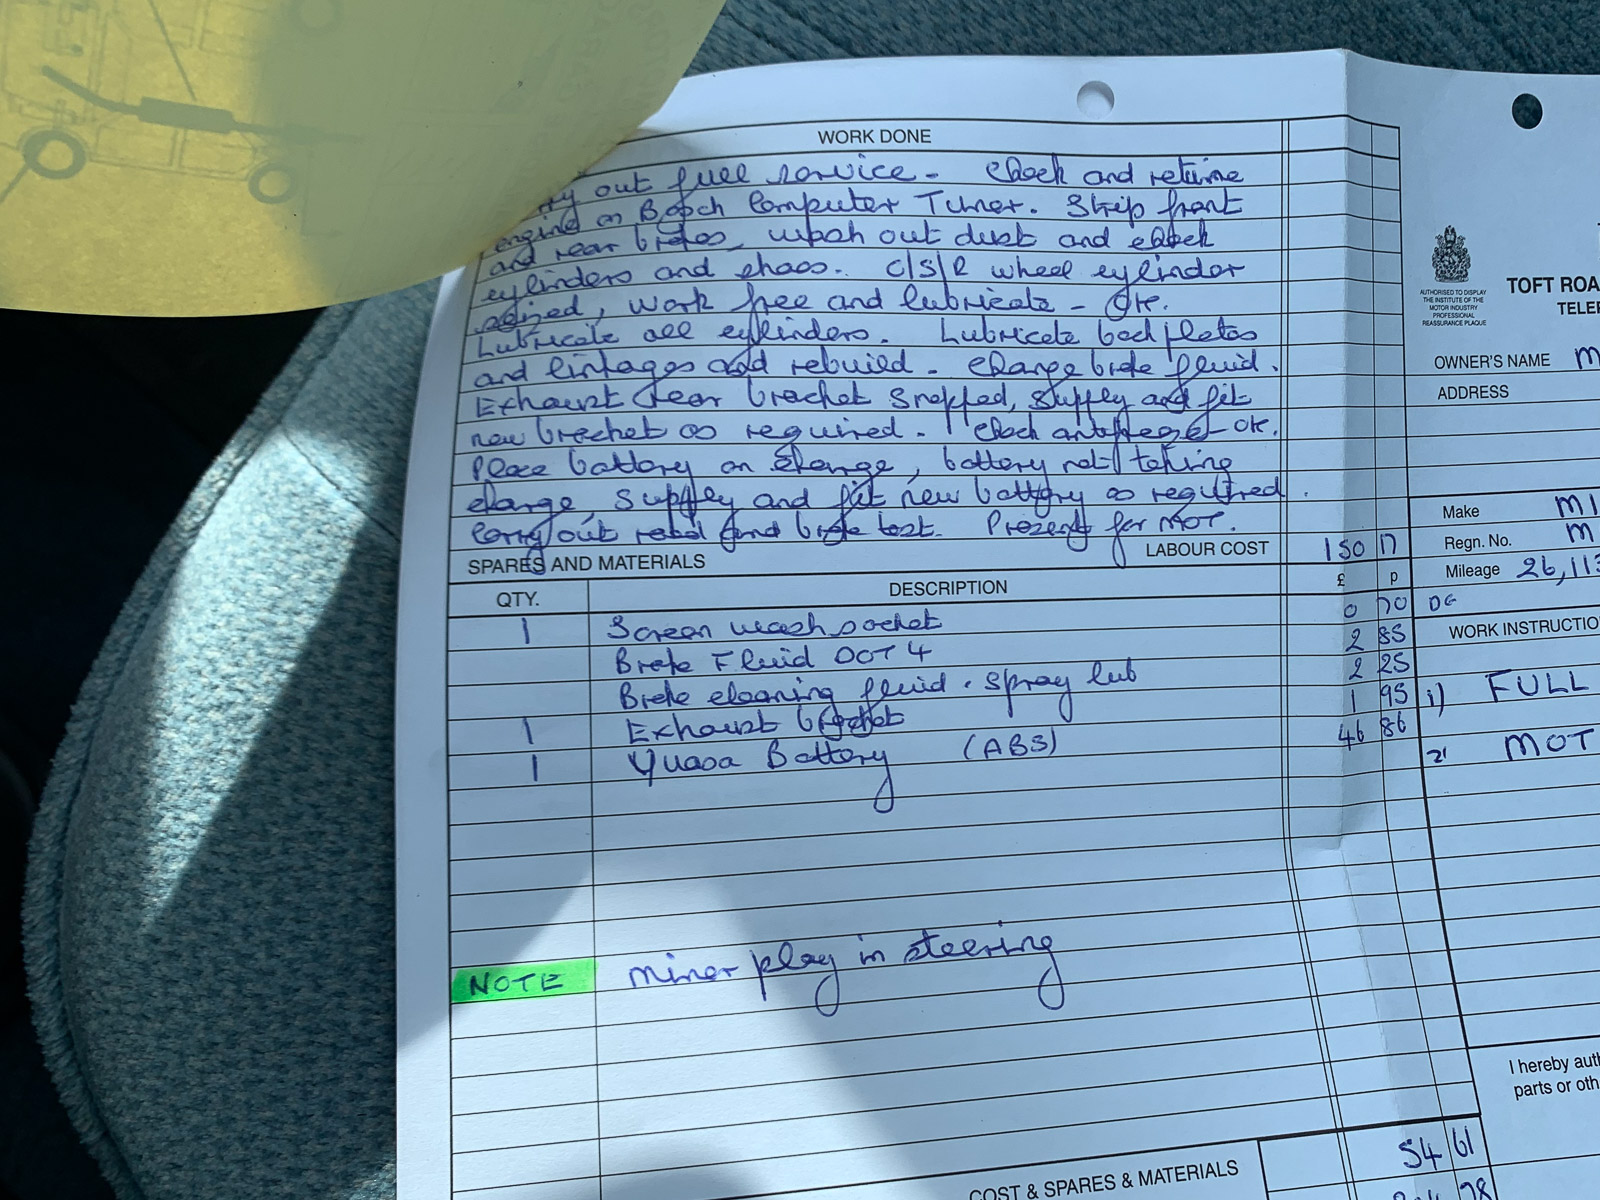 WORK DONE
out full service - Check and retune
engine on Bosch Computer Tuner. Strip front
and rear brakes, wash out dust and check
cylinders and shoes. O/S/R wheel cylinder
seized, work free and lubricate - OK.
Lubricate all cylinders. Lubricate backplates
and linkages and rebuild - Change brake fluid.
Exhaust rear bracket snapped, supply and fit
new bracket as required. Check antifreeze - OK.
Place battery on charge, battery not taking
charge, supply and fit new battery as required.
Carry out road and brake test. Present for MOT.
SPARES AND MATERIALS
LABOUR COST 150 17
QTY. DESCRIPTION £ p
1 Screen wash sachet 0 70
Brake Fluid DOT 4 2 85
Brake cleaning fluid. Spray lub 2 25
1 Exhaust bracket 1 95
1 Yuasa Battery (ABS) 46 86
NOTE minor play in steering
COST & SPARES & MATERIALS 54 61
78
AUTHORISED TO DISPLAY
THE INSTITUTE OF THE
MOTOR INDUSTRY
PROFESSIONAL
REASSURANCE PLAQUE
TOFT ROA
TELEP
OWNER'S NAME M
ADDRESS
Make MI
Regn. No. M
Mileage 26,113
WORK INSTRUCTIO
1) FULL
2) MOT
I hereby auth
parts or oth